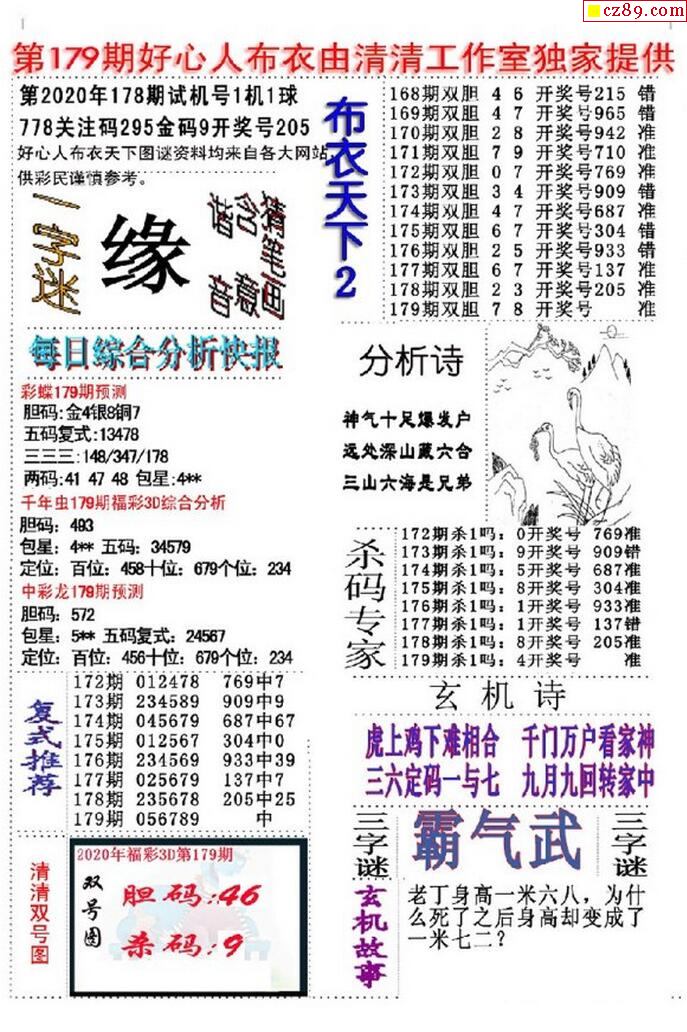 cz89.com
第179期好心人布衣由清清工作室独家提供
第2020年178期试机号1机1球
778关注码295金码9开奖号205
好心人布衣天下图谜资料均来自各大网站,
供彩民谨慎参考。
一字迷
缘
谐音
含意
猜笔画
布衣天下2
168期双胆 4 6 开奖号215 错
169期双胆 4 7 开奖号965 错
170期双胆 2 8 开奖号942 准
171期双胆 7 9 开奖号710 准
172期双胆 0 7 开奖号769 准
173期双胆 3 4 开奖号909 错
174期双胆 4 7 开奖号687 准
175期双胆 6 7 开奖号304 错
176期双胆 2 5 开奖号933 错
177期双胆 6 7 开奖号137 准
178期双胆 2 3 开奖号205 准
179期双胆 7 8 开奖号 准
每日综合分析快报
彩蝶179期预测
胆码:金4银8铜7
五码复式:13478
三三三:148/347/178
两码:41 47 48 包星:4**
千年虫179期福彩3D综合分析
胆码: 493
包星: 4** 五码: 34579
定位: 百位: 458十位: 679个位: 234
中彩龙179期预测
胆码: 572
包星: 5** 五码复式: 24567
定位: 百位: 456十位: 679个位: 234
分析诗
神气十足爆发户
远处深山藏六合
三山六海是兄弟
杀码专家
172期杀1吗: 0开奖号 769准
173期杀1吗: 9开奖号 909错
174期杀1吗: 5开奖号 687准
175期杀1吗: 8开奖号 304准
176期杀1吗: 1开奖号 933准
177期杀1吗: 1开奖号 137错
178期杀1吗: 8开奖号 205准
179期杀1吗: 4开奖号 准
复式推荐
172期 012478 769中7
173期 234589 909中9
174期 045679 687中67
175期 012567 304中0
176期 234569 933中39
177期 025679 137中7
178期 235678 205中25
179期 056789 中
玄机诗
虎上鸡下难相合 千门万户看家神
三六定码一与七 九月九回转家中
三字谜
霸气武
三字谜
清清双号图
2020年福彩3D第179期
双号图
胆码:46
杀码:9
玄机故事
老丁身高一米六八，为什
么死了之后身高却变成了
一米七二？